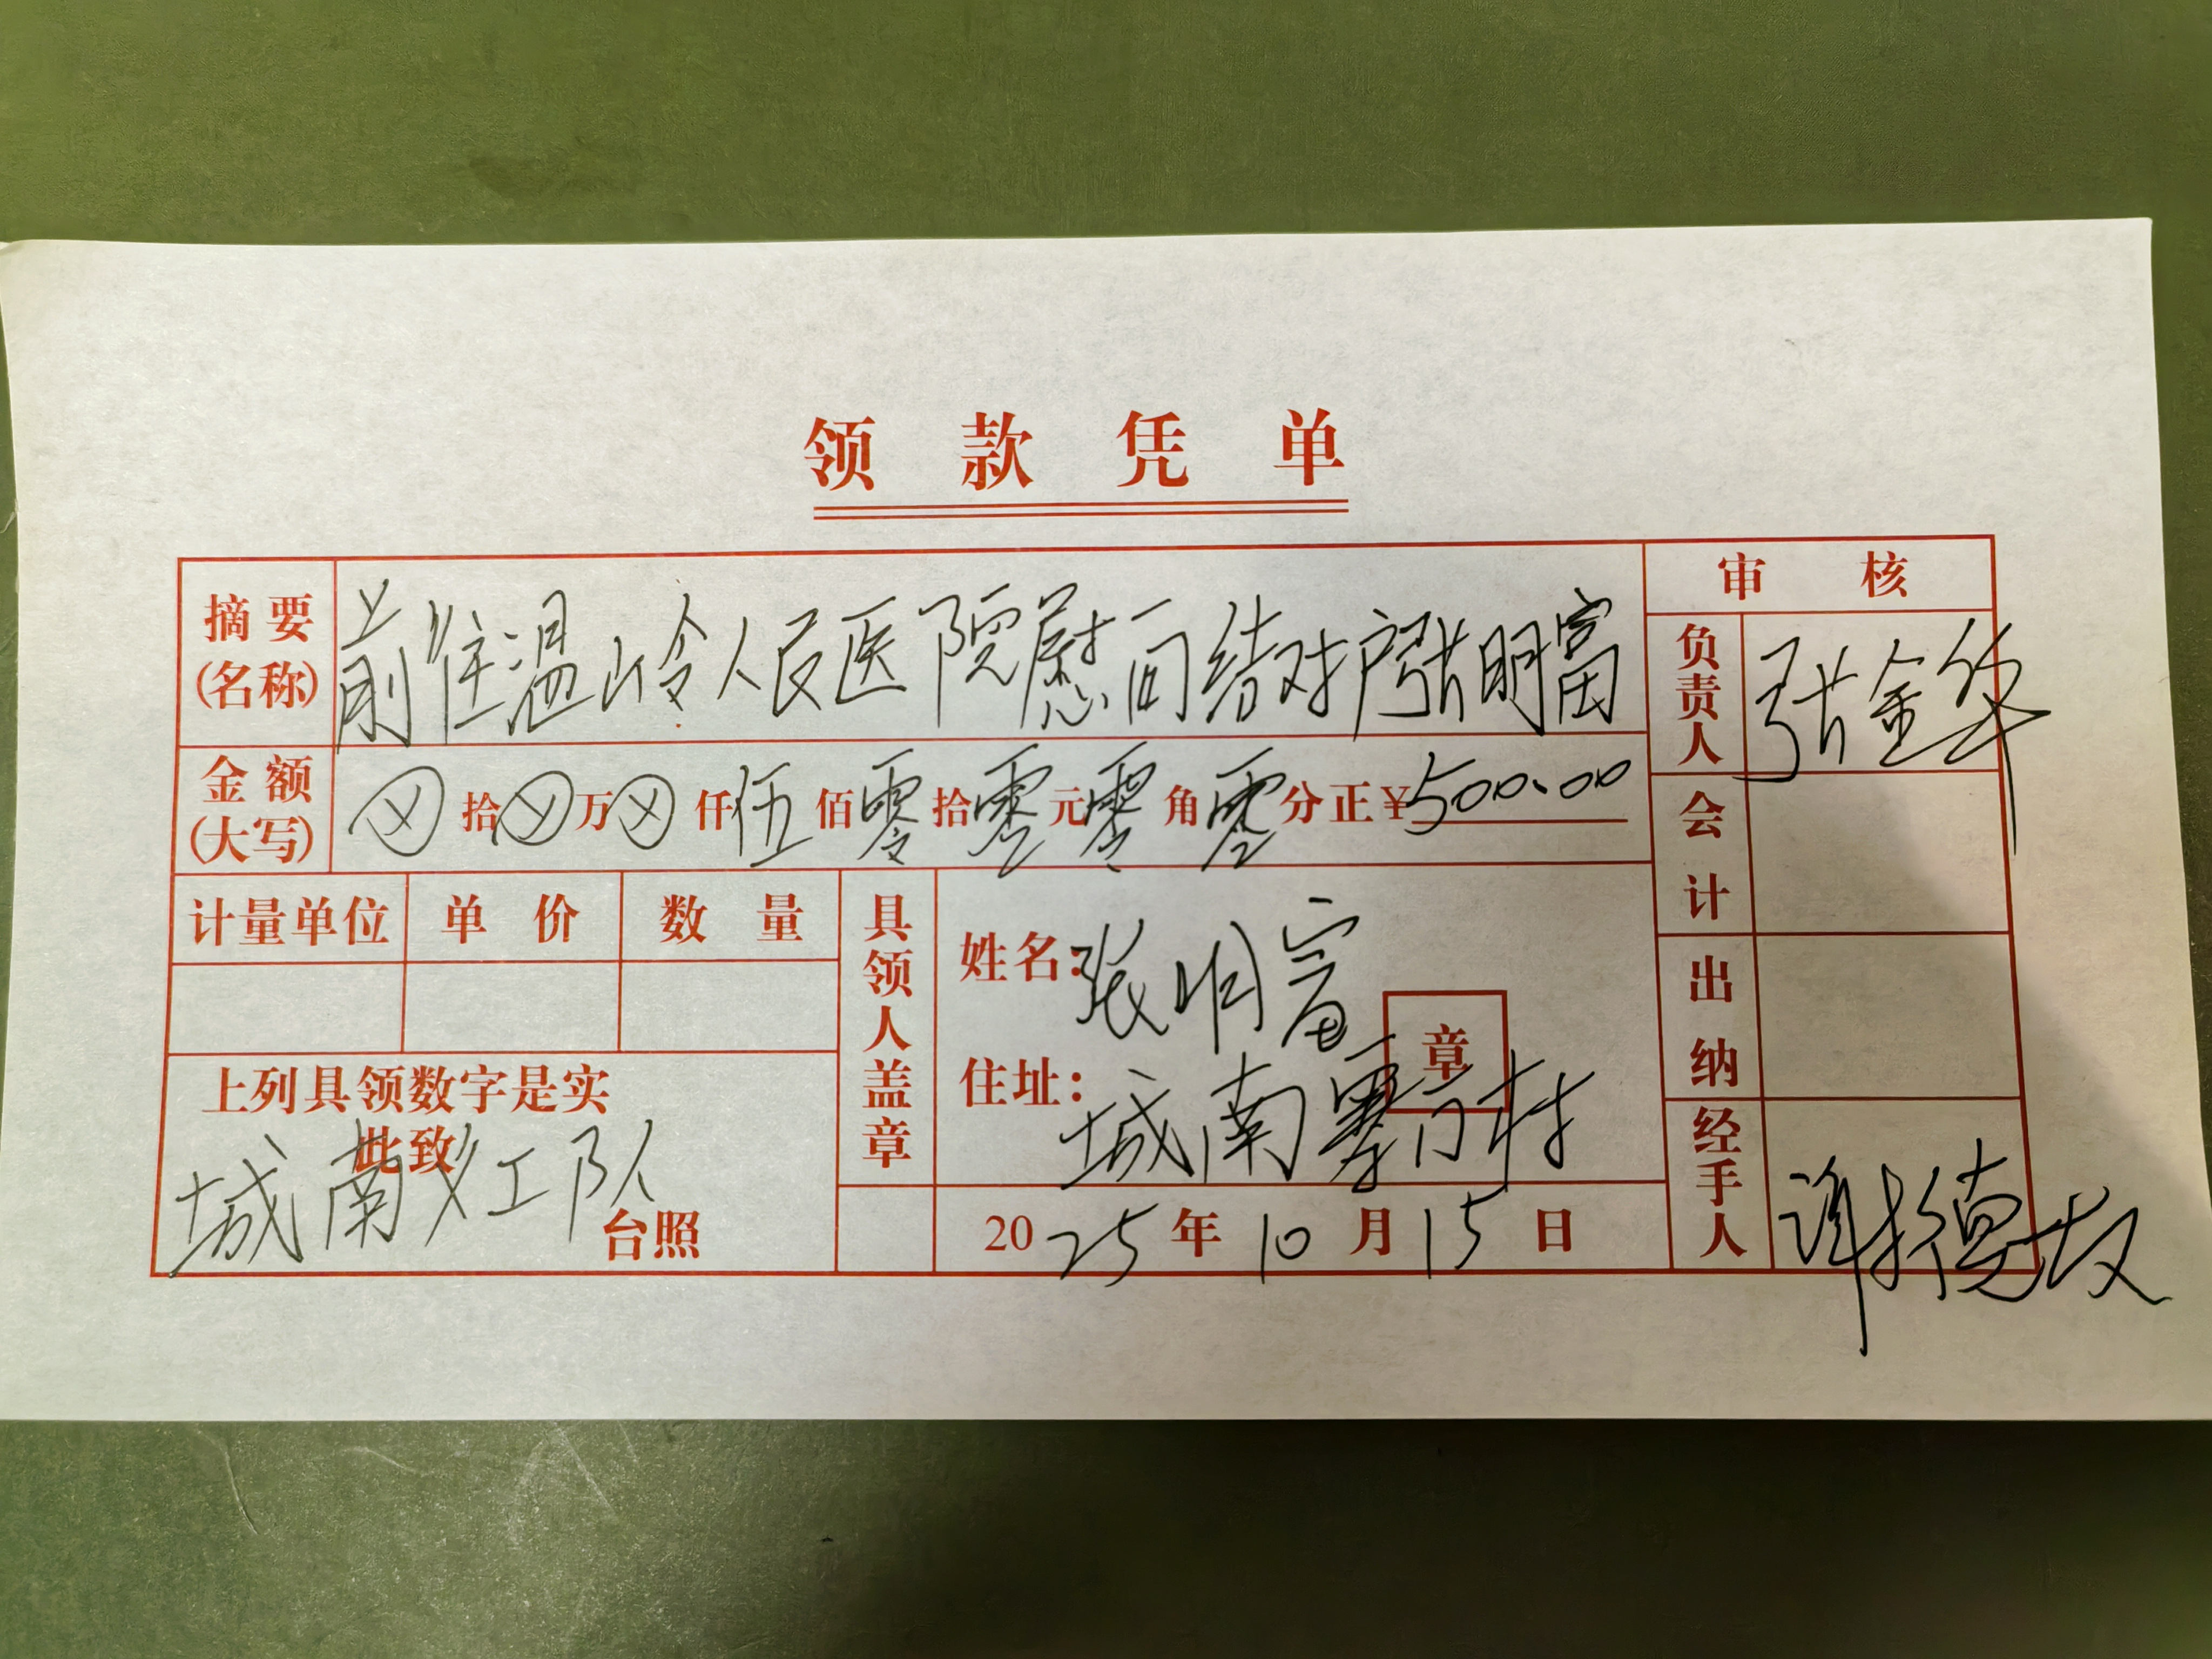 领款凭单
摘要(名称) 前往温岭人民医院慰问结对户张明富
金额(大写) ⊗拾⊗万⊗仟伍佰零拾零元零角零分正￥500.00
计量单位 单价 数量
上列具领数字是实
此致
城南义工队
台照
具领人盖章
姓名：张明富
章
住址：城南寨门村
2025年10月15日
审核
负责人 张金华
会计
出纳
经手人 谢德